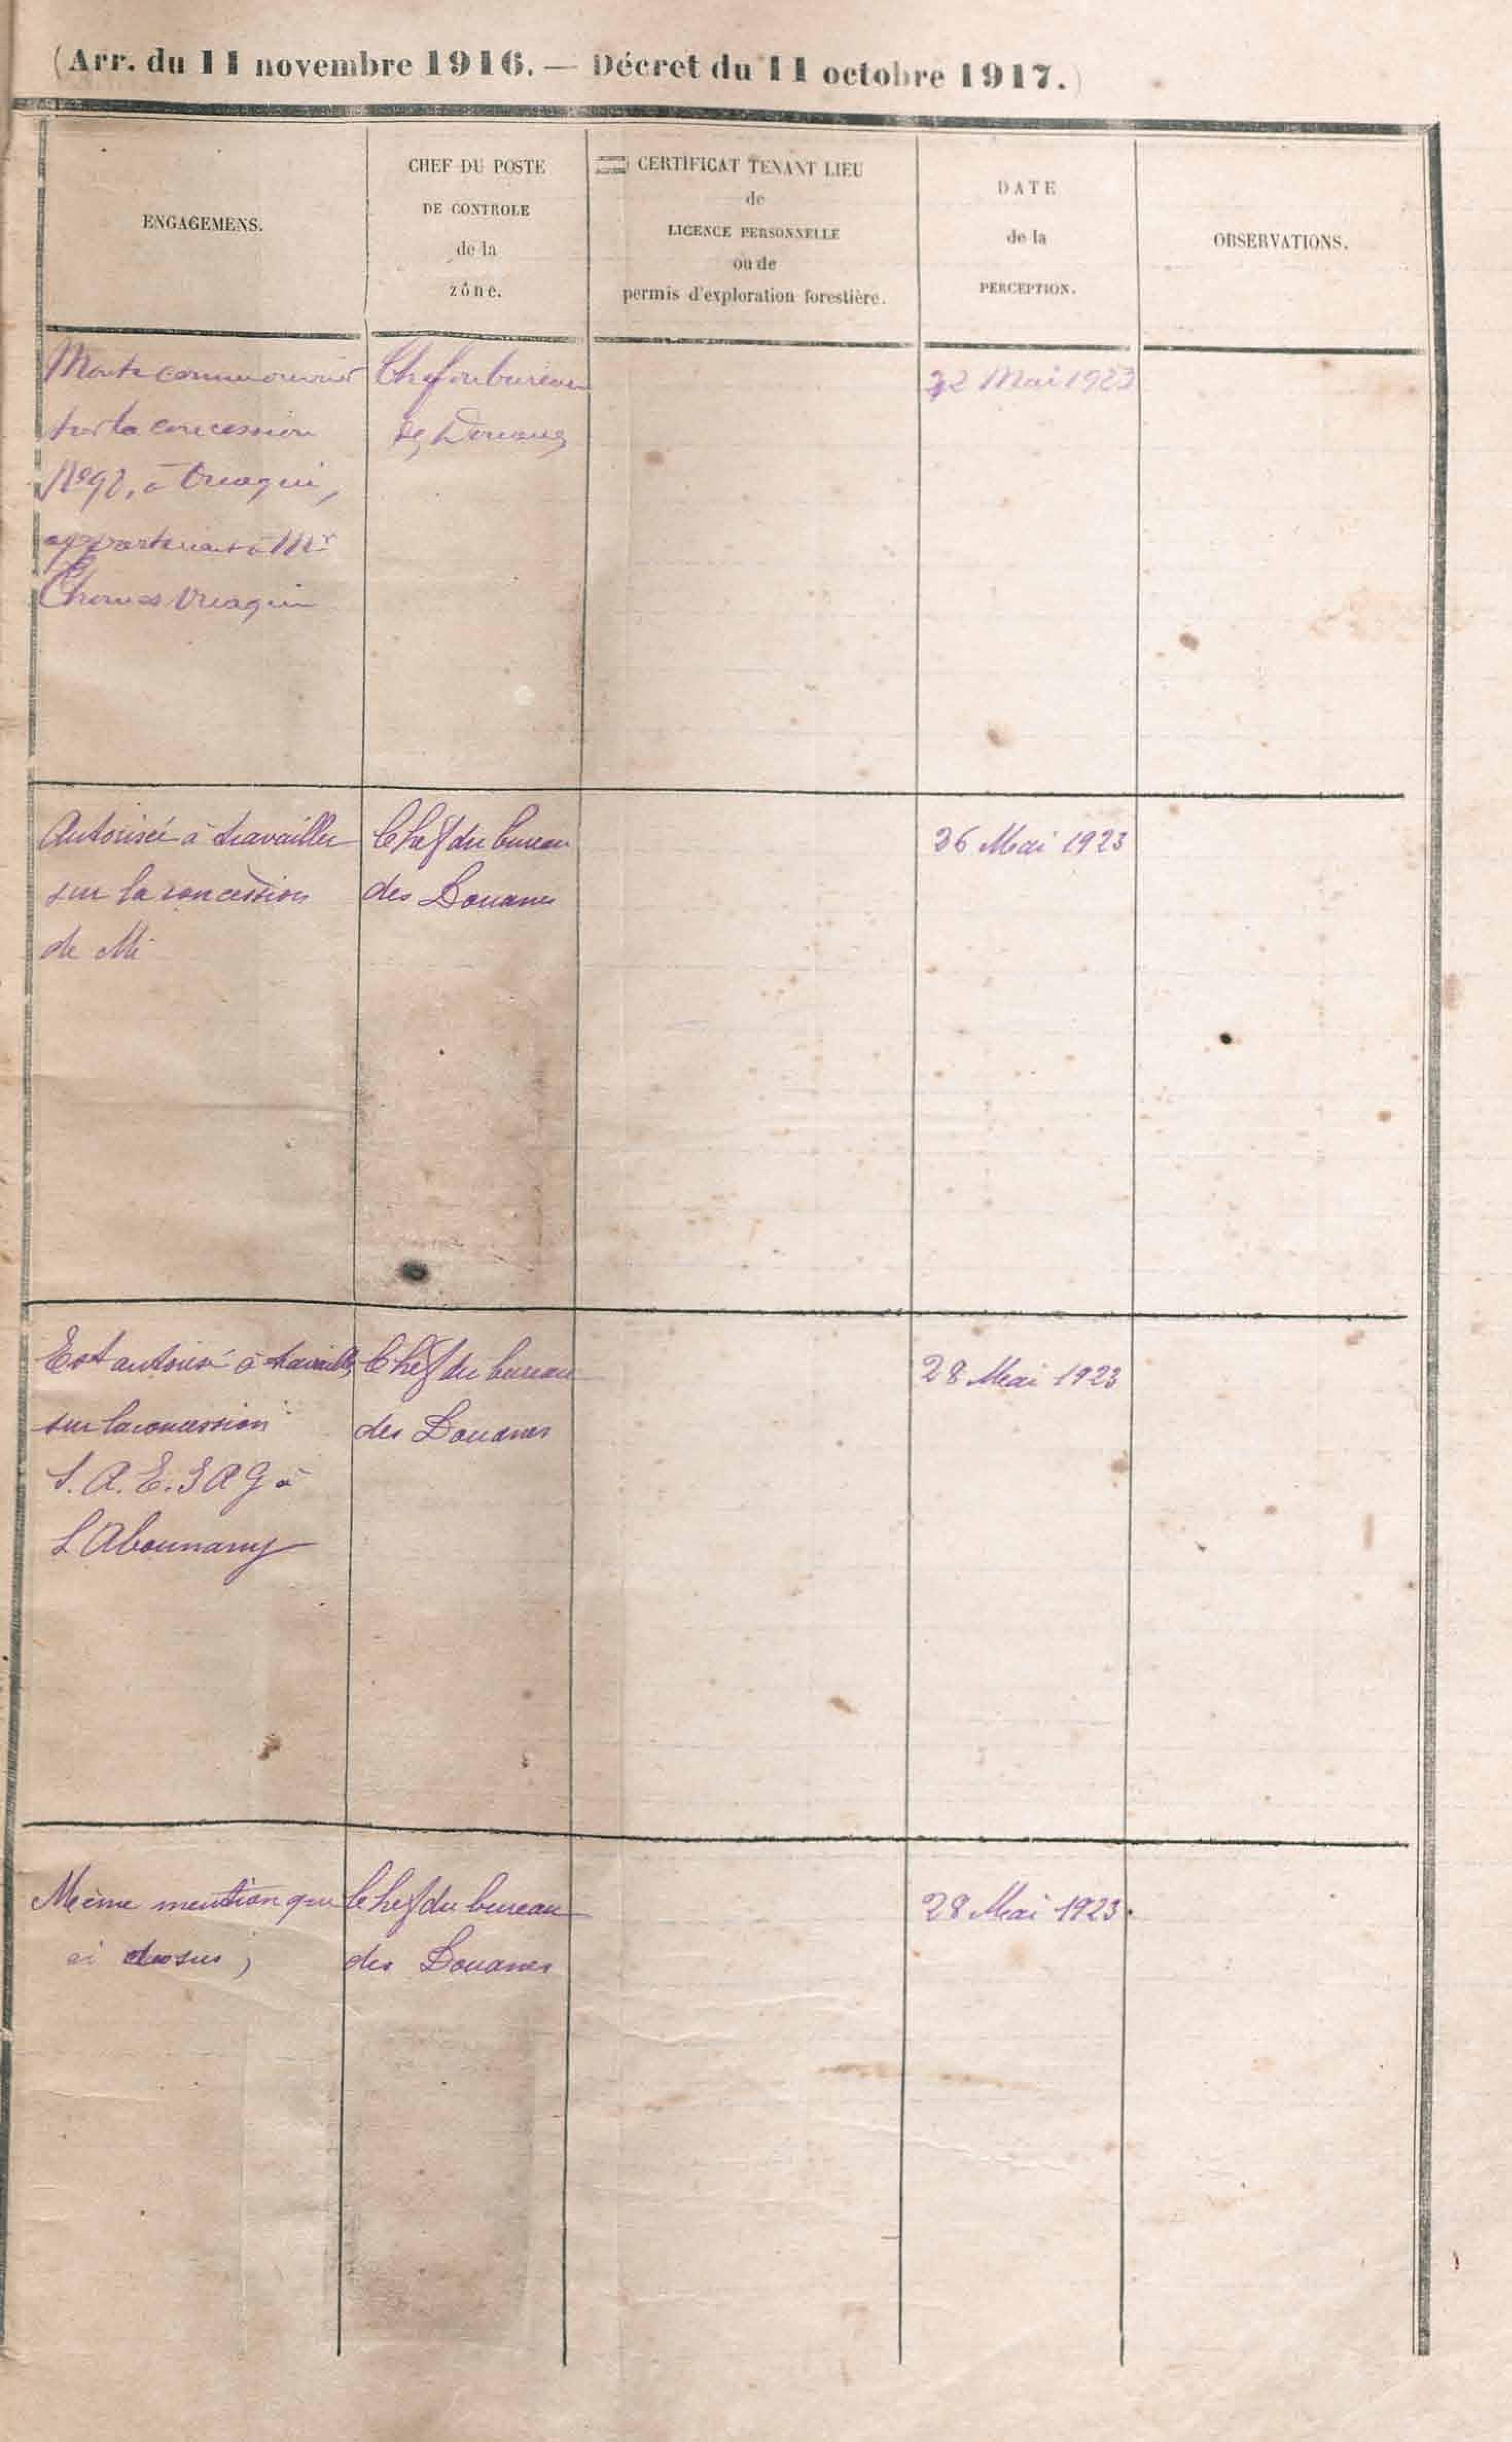 (Arr. du 11 novembre 1916. — Décret du 11 octobre 1917.)
ENGAGEMENS.
CHEF DU POSTE
DE CONTROLE
de la
zône.
CERTIFICAT TENANT LIEU
de
LICENCE PERSONNELLE
ou de
permis d'exploration forestière.
DATE
de la
PERCEPTION.
OBSERVATIONS.
Monte comme ouvrier
sur la concession
à
appartenant à Mr
Chef du bureau
des Douanes
22 Mai 1923
Autorisée à travailler
sur la concession
de Mr
Chef du bureau
des Douanes
26 Mai 1923
Est autorisé à travailler
sur la concession
S.A.E.S A G à
L'Abounamy
Chef du bureau
des Douanes
28 Mai 1923
Même mention que
ci dessus,
Chef du bureau
des Douanes
28 Mai 1923.